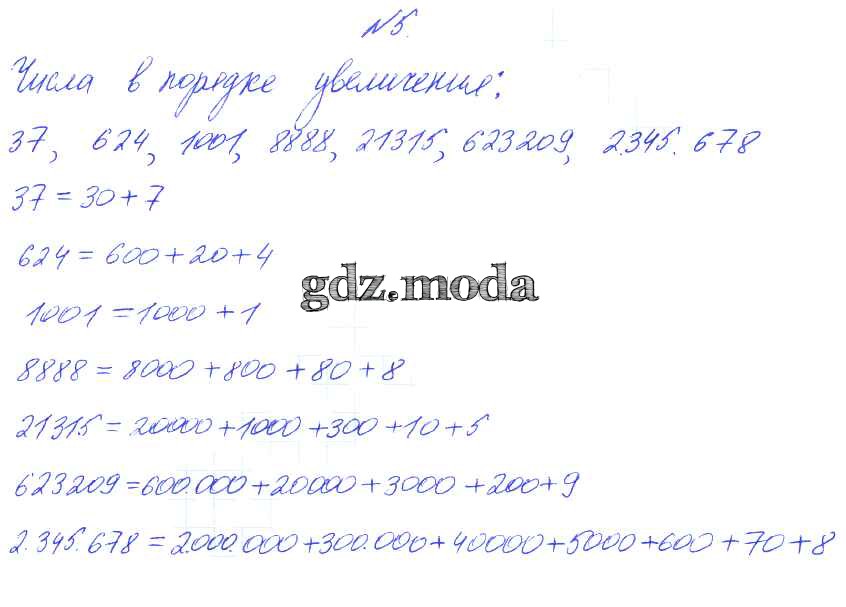 №5.
Числа в порядке увеличения:
37, 624, 1001, 8888, 21315, 623209, 2.345.678
37 = 30 + 7
624 = 600 + 20 + 4
gdz.moda
1001 = 1000 + 1
8888 = 8000 + 800 + 80 + 8
21315 = 20000 + 1000 + 300 + 10 + 5
623209 = 600.000 + 20000 + 3000 + 200 + 9
2.345.678 = 2.000.000 + 300.000 + 40000 + 5000 + 600 + 70 + 8